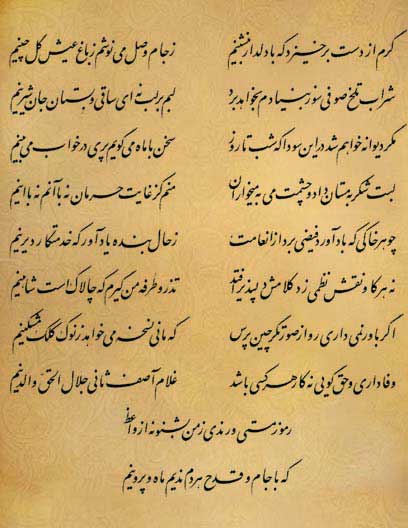 گرم از دست برخیزد که با دلدار بنشینم ز جام وصل می نوشم ز باغ عیش گل چینم
شراب تلخ صوفی سوز بنیادم بخواهد برد لبم بر لب نه ای ساقی و بستان جان شیرینم
مگر دیوانه خواهم شد در این سودا که شب تا روز سخن با ماه می گویم پری در خواب می بینم
لبت شکر به مستان داد و چشمت می به میخواران منم کز غایت حرمان نه با آنم نه با اینم
چو هر خاکی که باد آورد فیضی برد از انعامت ز حال بنده یاد آور که خدمتگار دیرینم
نه هر کاو نقش نظمی زد کلامش دلپذیر افتد تذرو طرفه من گیرم که چالاک است شاهینم
اگر باور نمی داری رو از صورتگر چین پرس که مانی نسخه می خواهد ز نوک کلک مشکینم
وفاداری و حق گویی نه کار هر کسی باشد غلام آصف ثانی جلال الحق والدینم
رموز مستی و رندی ز من بشنو نه از واعظ
که با جام و قدح هر دم ندیم ماه و پروینم